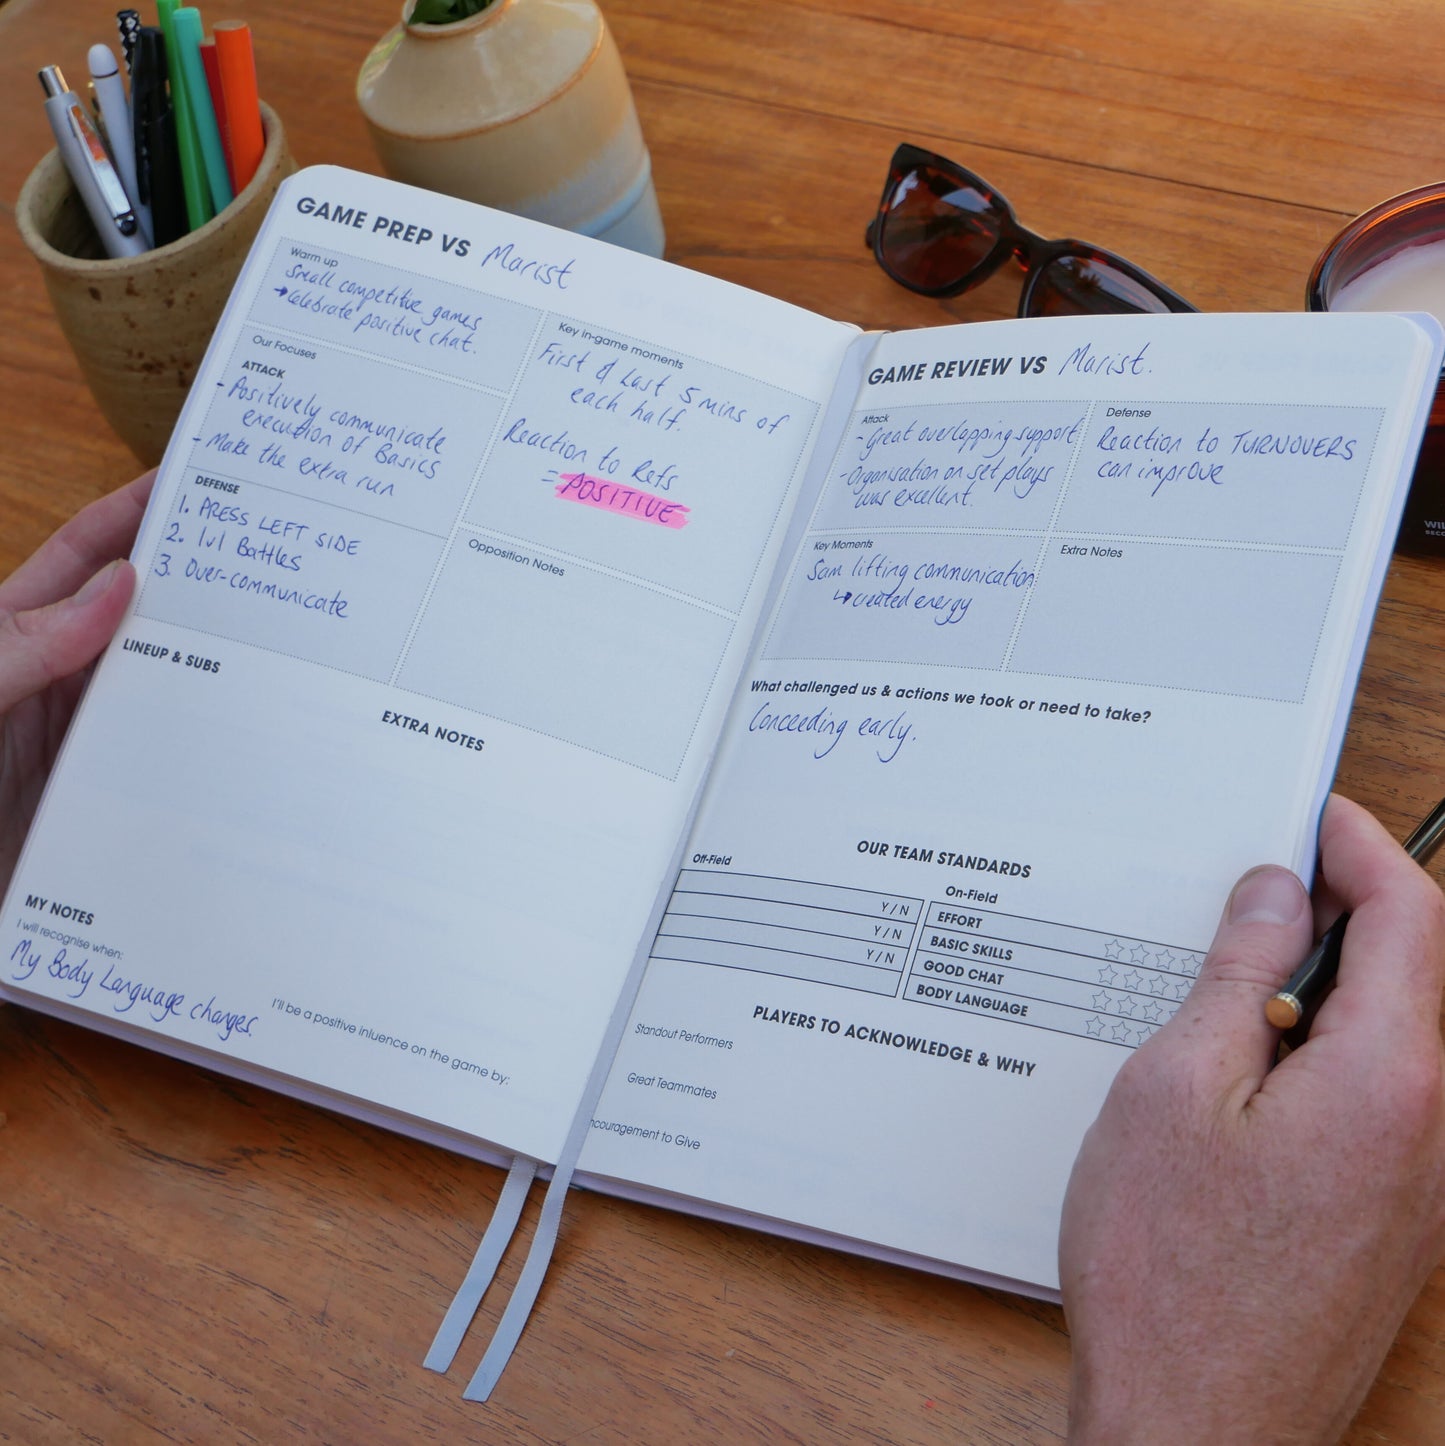 GAME PREP VS Marist
Warm up
Small competitive games
→ Celebrate positive chat.
Our Focuses
ATTACK
- Positively communicate
execution of Basics
- Make the extra run
DEFENSE
1. PRESS LEFT SIDE
2. 1v1 Battles
3. Over-communicate
Key in-game moments
First & Last 5 mins of
each half.
Reaction to Refs
= POSITIVE
Opposition Notes
LINEUP & SUBS
EXTRA NOTES
MY NOTES
I will recognise when:
My Body Language changes.
I'll be a positive inluence on the game by:
GAME REVIEW VS Marist.
Attack
- Great overlapping support
- Organisation on set plays
was excellent.
Defense
Reaction to TURNOVERS
can improve
Key Moments
Sam lifting communication
↳ created energy
Extra Notes
What challenged us & actions we took or need to take?
Conceeding early.
OUR TEAM STANDARDS
Off-Field
Y / N
Y / N
Y / N
On-Field
EFFORT
BASIC SKILLS
GOOD CHAT
BODY LANGUAGE
PLAYERS TO ACKNOWLEDGE & WHY
Standout Performers
Great Teammates
ncouragement to Give